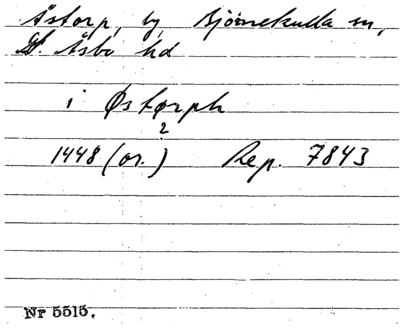 Åstorp, by, Bjørnekulla sn,
S. Åsbo hd
i Østorph
?
1448 (or.) Rep. 7843
Nr 5515.